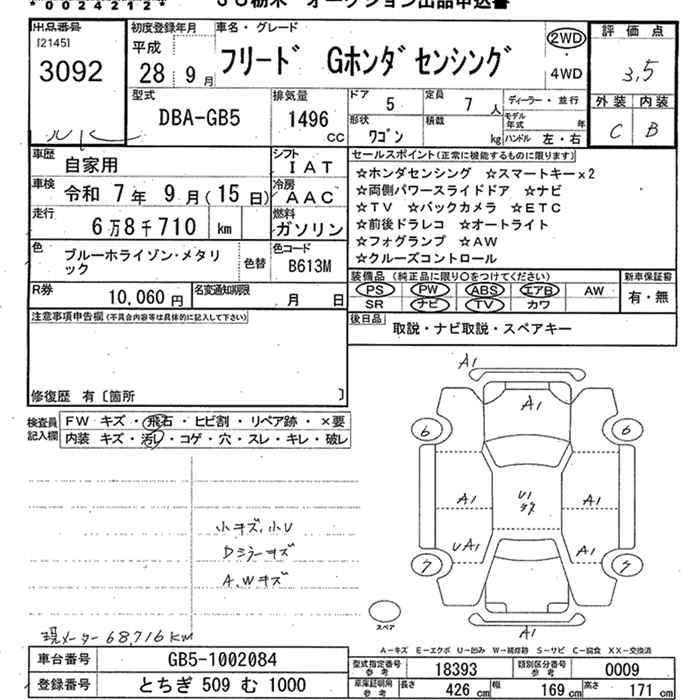 *00242112*
JU栃木 オークション出品申込書
出品番号
[2145]
3092
初度登録年月
平成
28年 9月
車名・グレード
フリード Gホンダセンシング
2WD
・
4WD
評価点
3.5
外装 内装
C B
型式
DBA-GB5
排気量
1496
CC
ドア
5
定員
7人
形状
ワゴン
積載
kg
ディーラー・並行
モデル年式 年
ハンドル 左・右
車歴
自家用
シフト
IAT
車検
令和 7年 9月(15日)
冷房
AAC
走行
6万8千710 km
燃料
ガソリン
色
ブルーホライゾン・メタリック
色替
色コード
B613M
R券
10,060円
名変通知期限
月 日
セールスポイント(正常に機能するものに限ります)
☆ホンダセンシング ☆スマートキーx2
☆両側パワースライドドア ☆ナビ
☆TV ☆バックカメラ ☆ETC
☆前後ドラレコ ☆オートライト
☆フォグランプ ☆AW
☆クルーズコントロール
装備品(純正品に限り○をつけてください)
PS PW ABS エアB AW
SR ナビ TV カワ
新車保証書
有・無
後日品
取説・ナビ取説・スペアキー
注意事項申告欄(不具合内容等は具体的に記入して下さい)
修復歴 有〔箇所 〕
検査員記入欄
FW キズ・飛石・ヒビ割・リペア跡・×要
内装 キズ・汚レ・コゲ・穴・スレ・キレ・破レ
小キズ、小U
Dミラーキズ
A.Wキズ
現メーター 68,716km
A1
A1
6
6
A1
U1
A1
UA1
A1
7
5
A1
スペア
A-キズ E-エクボ U-凹み W-補修跡 S-サビ C-腐食 XX-交換済
車台番号
GB5-1002084
登録番号
とちぎ 509 む 1000
型式指定番号
参考
18393
類別区分番号
参考
0009
車庫証明用
参考
長さ
426cm
幅
169cm
高さ
171cm